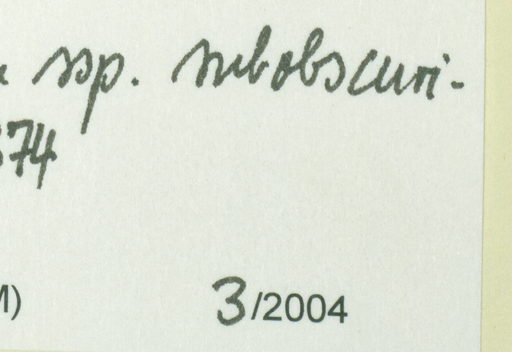 ssp. subobscuri-
74
M)
3/2004